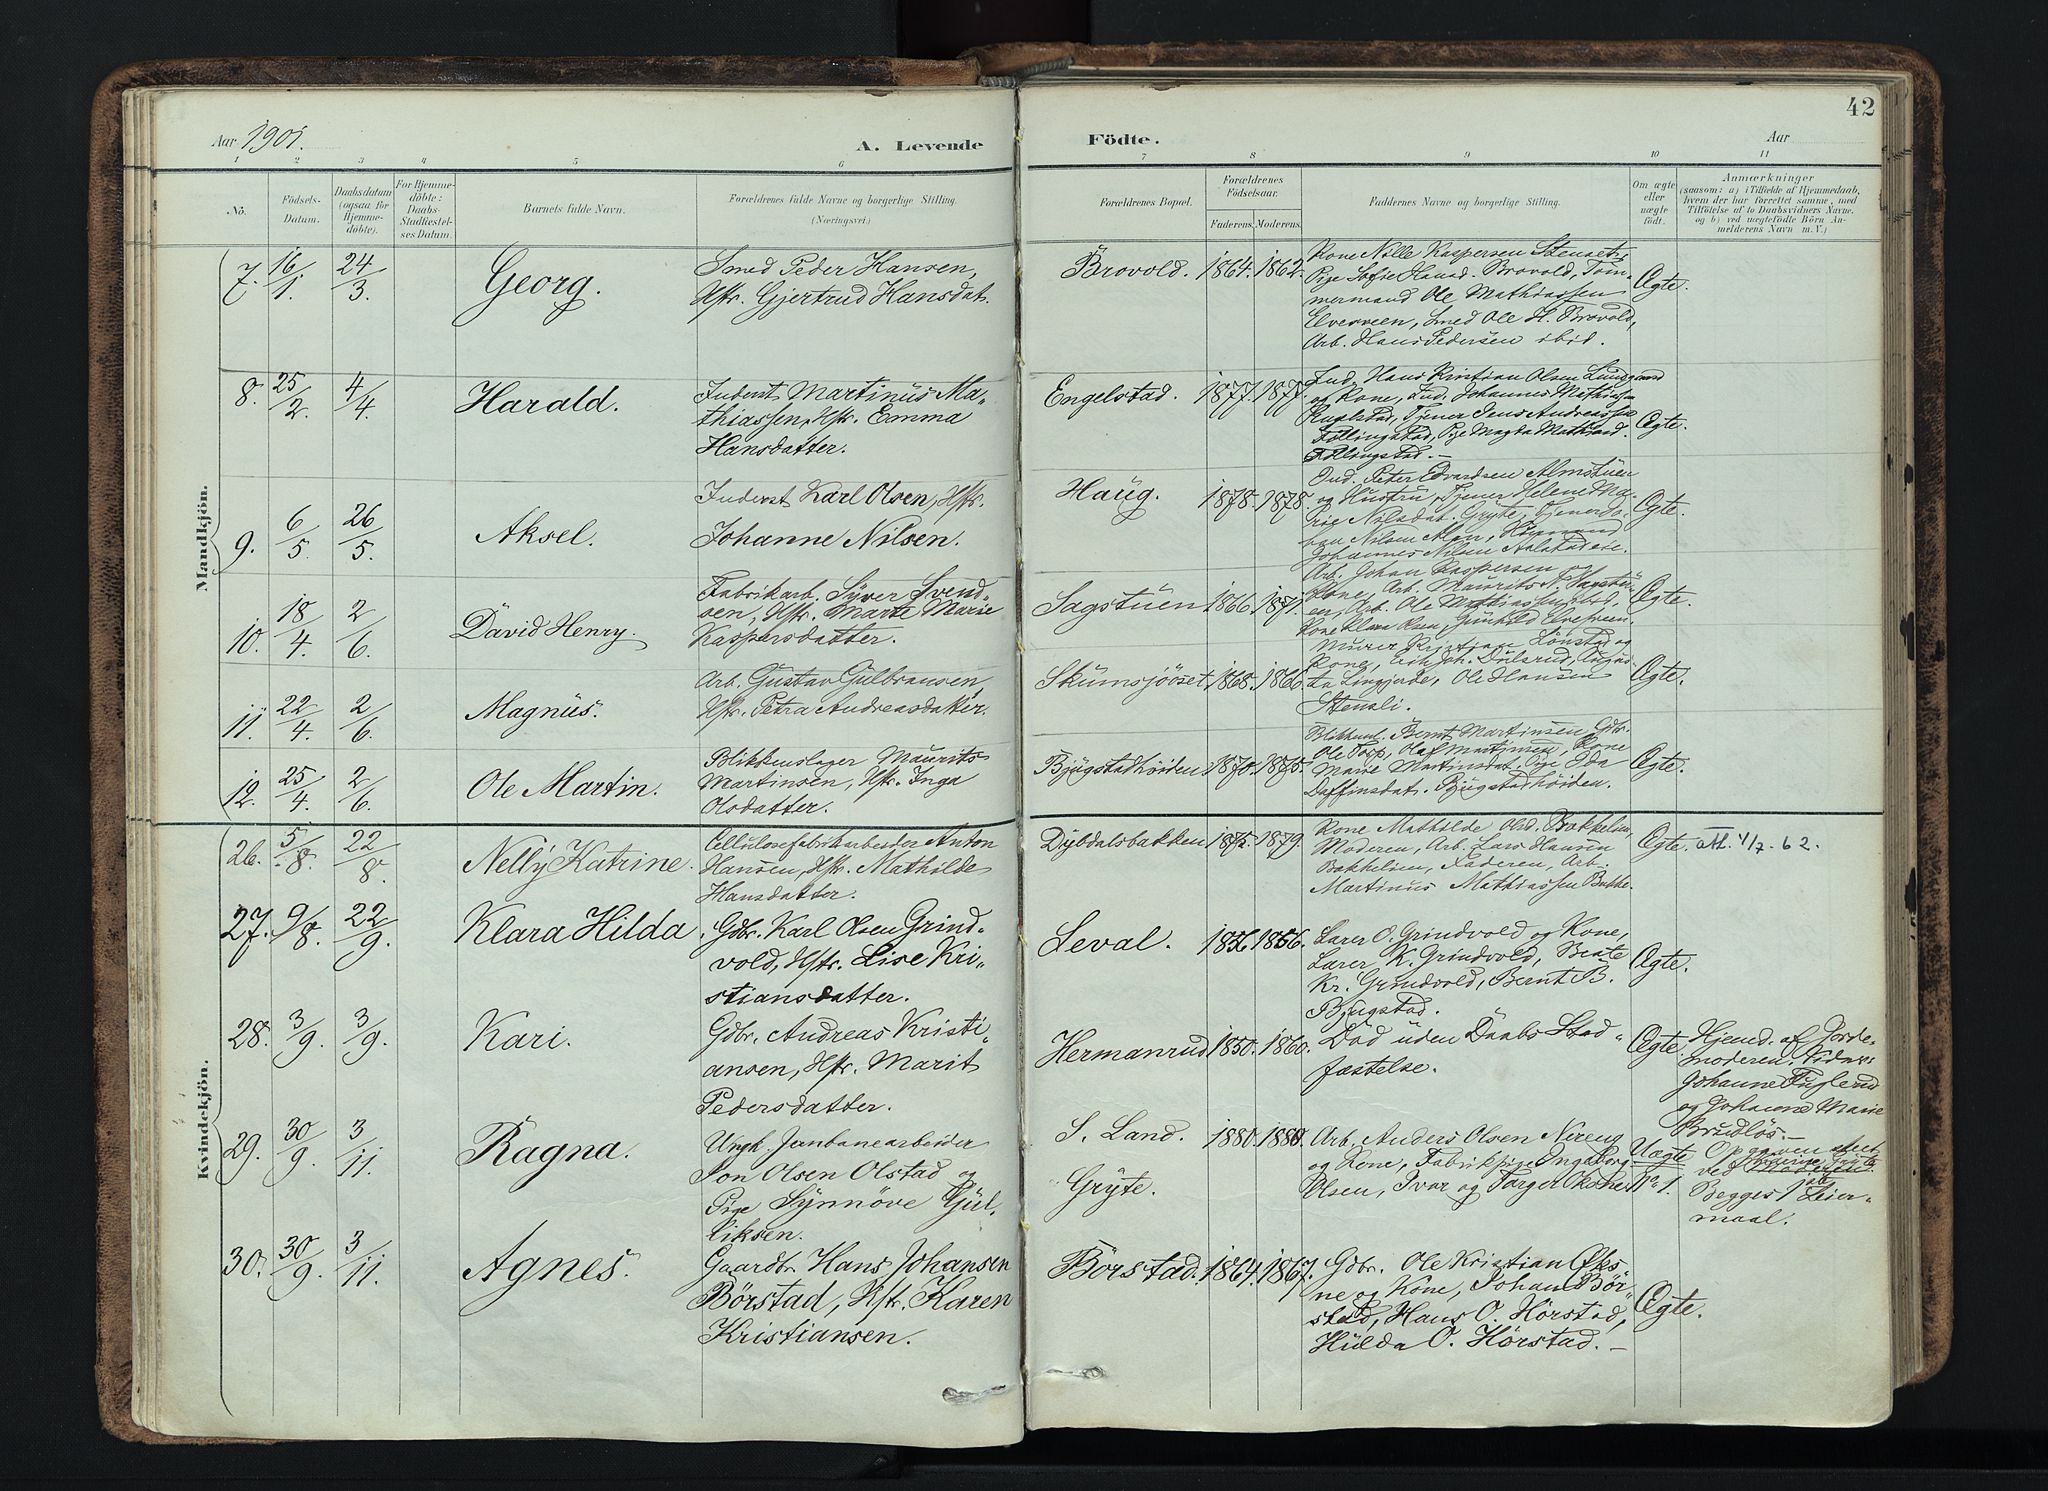 42
Aar 1901.
A. Levende Födte.
Aar
1 2 3 4 5 6 7 8 9 10 11
No.
Födsels-Datum.
Daabsdatum (ogsaa for Hjemme-döbte).
For Hjemme-döbte: Daabs-Stadfæstel-ses Datum.
Barnets fulde Navn.
Forældrenes fulde Navne og borgerlige Stilling. (Næringsvei.)
Forældrenes Bopæl.
Forældrenes Födselsaar.
Faderens. Moderens.
Faddernes Navne og borgerlige Stilling.
Om ægte eller uægte födt.
Anmærkninger
(saasom: a) i Tilfælde af Hjemmedaab, hvem der har forrettet samme, med Tilföielse af to Daabsvidners Navne. og b) ved uægtefödte Börn An-melderens Navn m. V.)
Mandkjön.
7. 16/1. 24/3. Georg.
Smed Peder Hansen,
Hstr. Gjertrud Hansdat.
Brovold. 1864. 1862.
Kone Nille Kaspersen Stenset,
Pige Sofie Hansd. Brovold, Tøm-
mermand Ole Mathiassen
Elvesveen, Smed Ole H. Brovold,
Arb. Hans Pedersen ibid.
Ægte.
8. 25/2. 4/4. Harald.
Inderst Martinus Ma-
thiassen, Hstr. Emma
Hansdatter.
Engelstad. 1877. 1877.
Ind. Hans Kristian Olsen
og Kone, Ind. Johannes Mathias
Tjener Jens Andreassen
Pige Magda Mathisd.
Ægte.
9. 6/5. 26/5. Aksel.
Inderst Karl Olsen, Hstr.
Johanne Nilsen.
Haug. 1878. 1878.
Ind. Peter Edvardsen Almstuen
og Hustru, Tjener Helene Ma-
rie Nilsdat. Gryte, Tjener Jo-
han Nilsen
Johannes Nilsen
Ægte.
10. 18/4. 2/6. David Henry.
Fabrikarb. Syver Svend-
sen, Hstr. Marte Marie
Kaspersdatter.
Sagstuen 1866. 1871.
Arb. Johan Kaspersen og
Kone, Arb. Maurits N. Sagstu-
en, Arb. Ole Mathiassen ibid,
Kone Klara Olsen, Gunhild Elvesveen.
Ægte.
11. 22/4. 2/6. Magnus.
Arb. Gustav Gulbransen,
Hstr. Petra Andreasdatter.
Skumsjöset 1868. 1866.
Murer Kristian Lønstad og
Kone, Erik Joh. Dulsrud, Augus-
ta Lingjerde, Ole Hansen
Stensli.
Ægte.
12. 25/4. 2/6. Ole Martin.
Blikkenslager Maurits
Martinsen, Hstr. Inga
Olsdatter.
Bjugstadhöiden 1870. 1875.
Blikkensl. Bernt Martinsen, Gdbr.
Ole Torp, Olaf Martinsen, Kone
Marie Martinsdat. Pige Ida
Daffinsdat. Bjugstadhöiden.
Ægte.
Kvindekjön.
26. 5/8. 22/8. Nelly Katrine.
Cellulosefabrikarbeider Anton
Hansen, Hstr. Mathilde
Hansdatter.
Dybdalsbakken 1872. 1879.
Kone Mathilde Olsd. Bakkelien,
Moderen, Arb. Lars Hansen
Bakkelien, Faderen, Arb.
Martinus Mathiassen Bakke.
Ægte. att. 4/7-62.
27. 9/8. 22/9. Klara Hilda
Gdbr. Karl Olsen Grind-
vold, Hstr. Lise Kri-
stiansdatter.
Leval. 1856 1856.
Larer O. Grindvold og Kone,
Larer K. Grindvold, Beate
Kr. Grindvold, Bernt B.
Bjugstad.
Ægte.
28. 3/9. 3/9. Kari.
Gdbr. Andreas Kristi-
ansen, Hstr. Marit
Pedersdatter.
Hermanrud 1850. 1860.
Död uden Daabs Stad-
fæstelse.
Ægte.
Hjemd. af Jorde-
moderen. Vidner:
Johanne Fuglerud
og Johanne Marie
Brudlös.-
29. 30/9. 3/11. Ragna.
Ungk. Jernbanearbeider
Jon Olsen Olstad og
Pige Synnöve Gul-
liksen.
S. Land.
Gryte.
1880. 1880.
Arb. Anders Olsen Nereng
og Kone, Fabrikpige Ingeborg
Olsen, Ivar og Torger
Uægte
No 1.
Opgaven
ved
Begges 1ste Leier-
maal.
30. 30/9. 3/11. Agnes.
Gaardbr. Hans Johansen
Börstad, Hstr. Karen
Kristiansen.
Börstad. 1864. 1867.
Gdbr. Ole Kristian Øks-
ne og Kone, Johan Bör-
stad, Hans O. Hørstad,
Hulda O. Hørstad.-
Ægte.